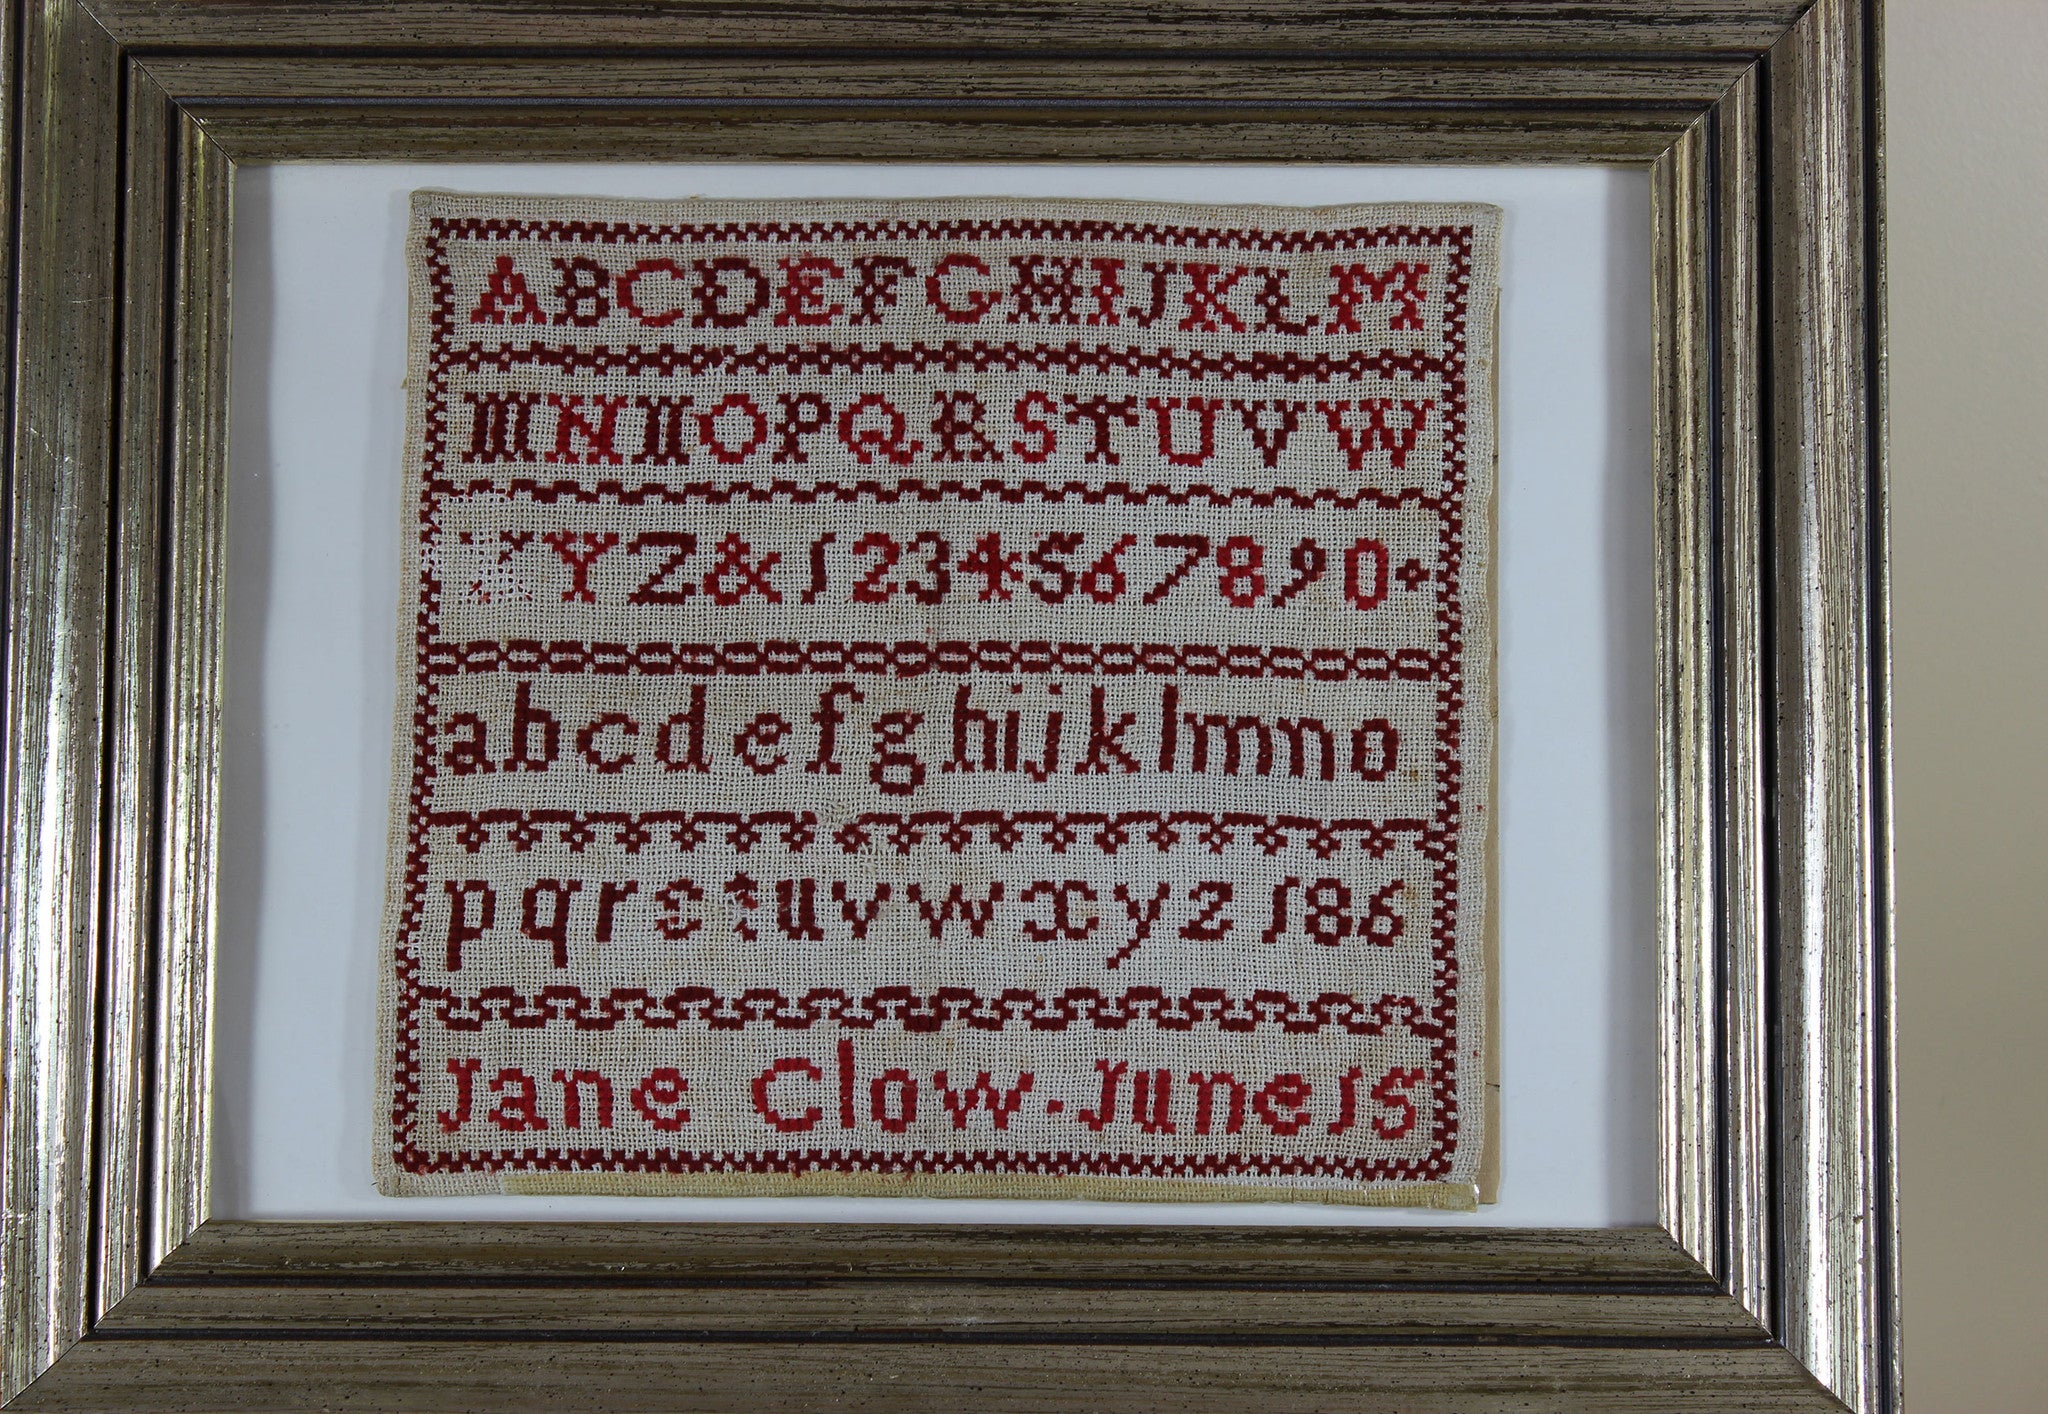 ABCDEFGHIJKLM
MNNOPQRSTUVW
XYZ&1234567890
abcdefghijklmno
pqrstuvwxyz186
Jane Clow. June 15